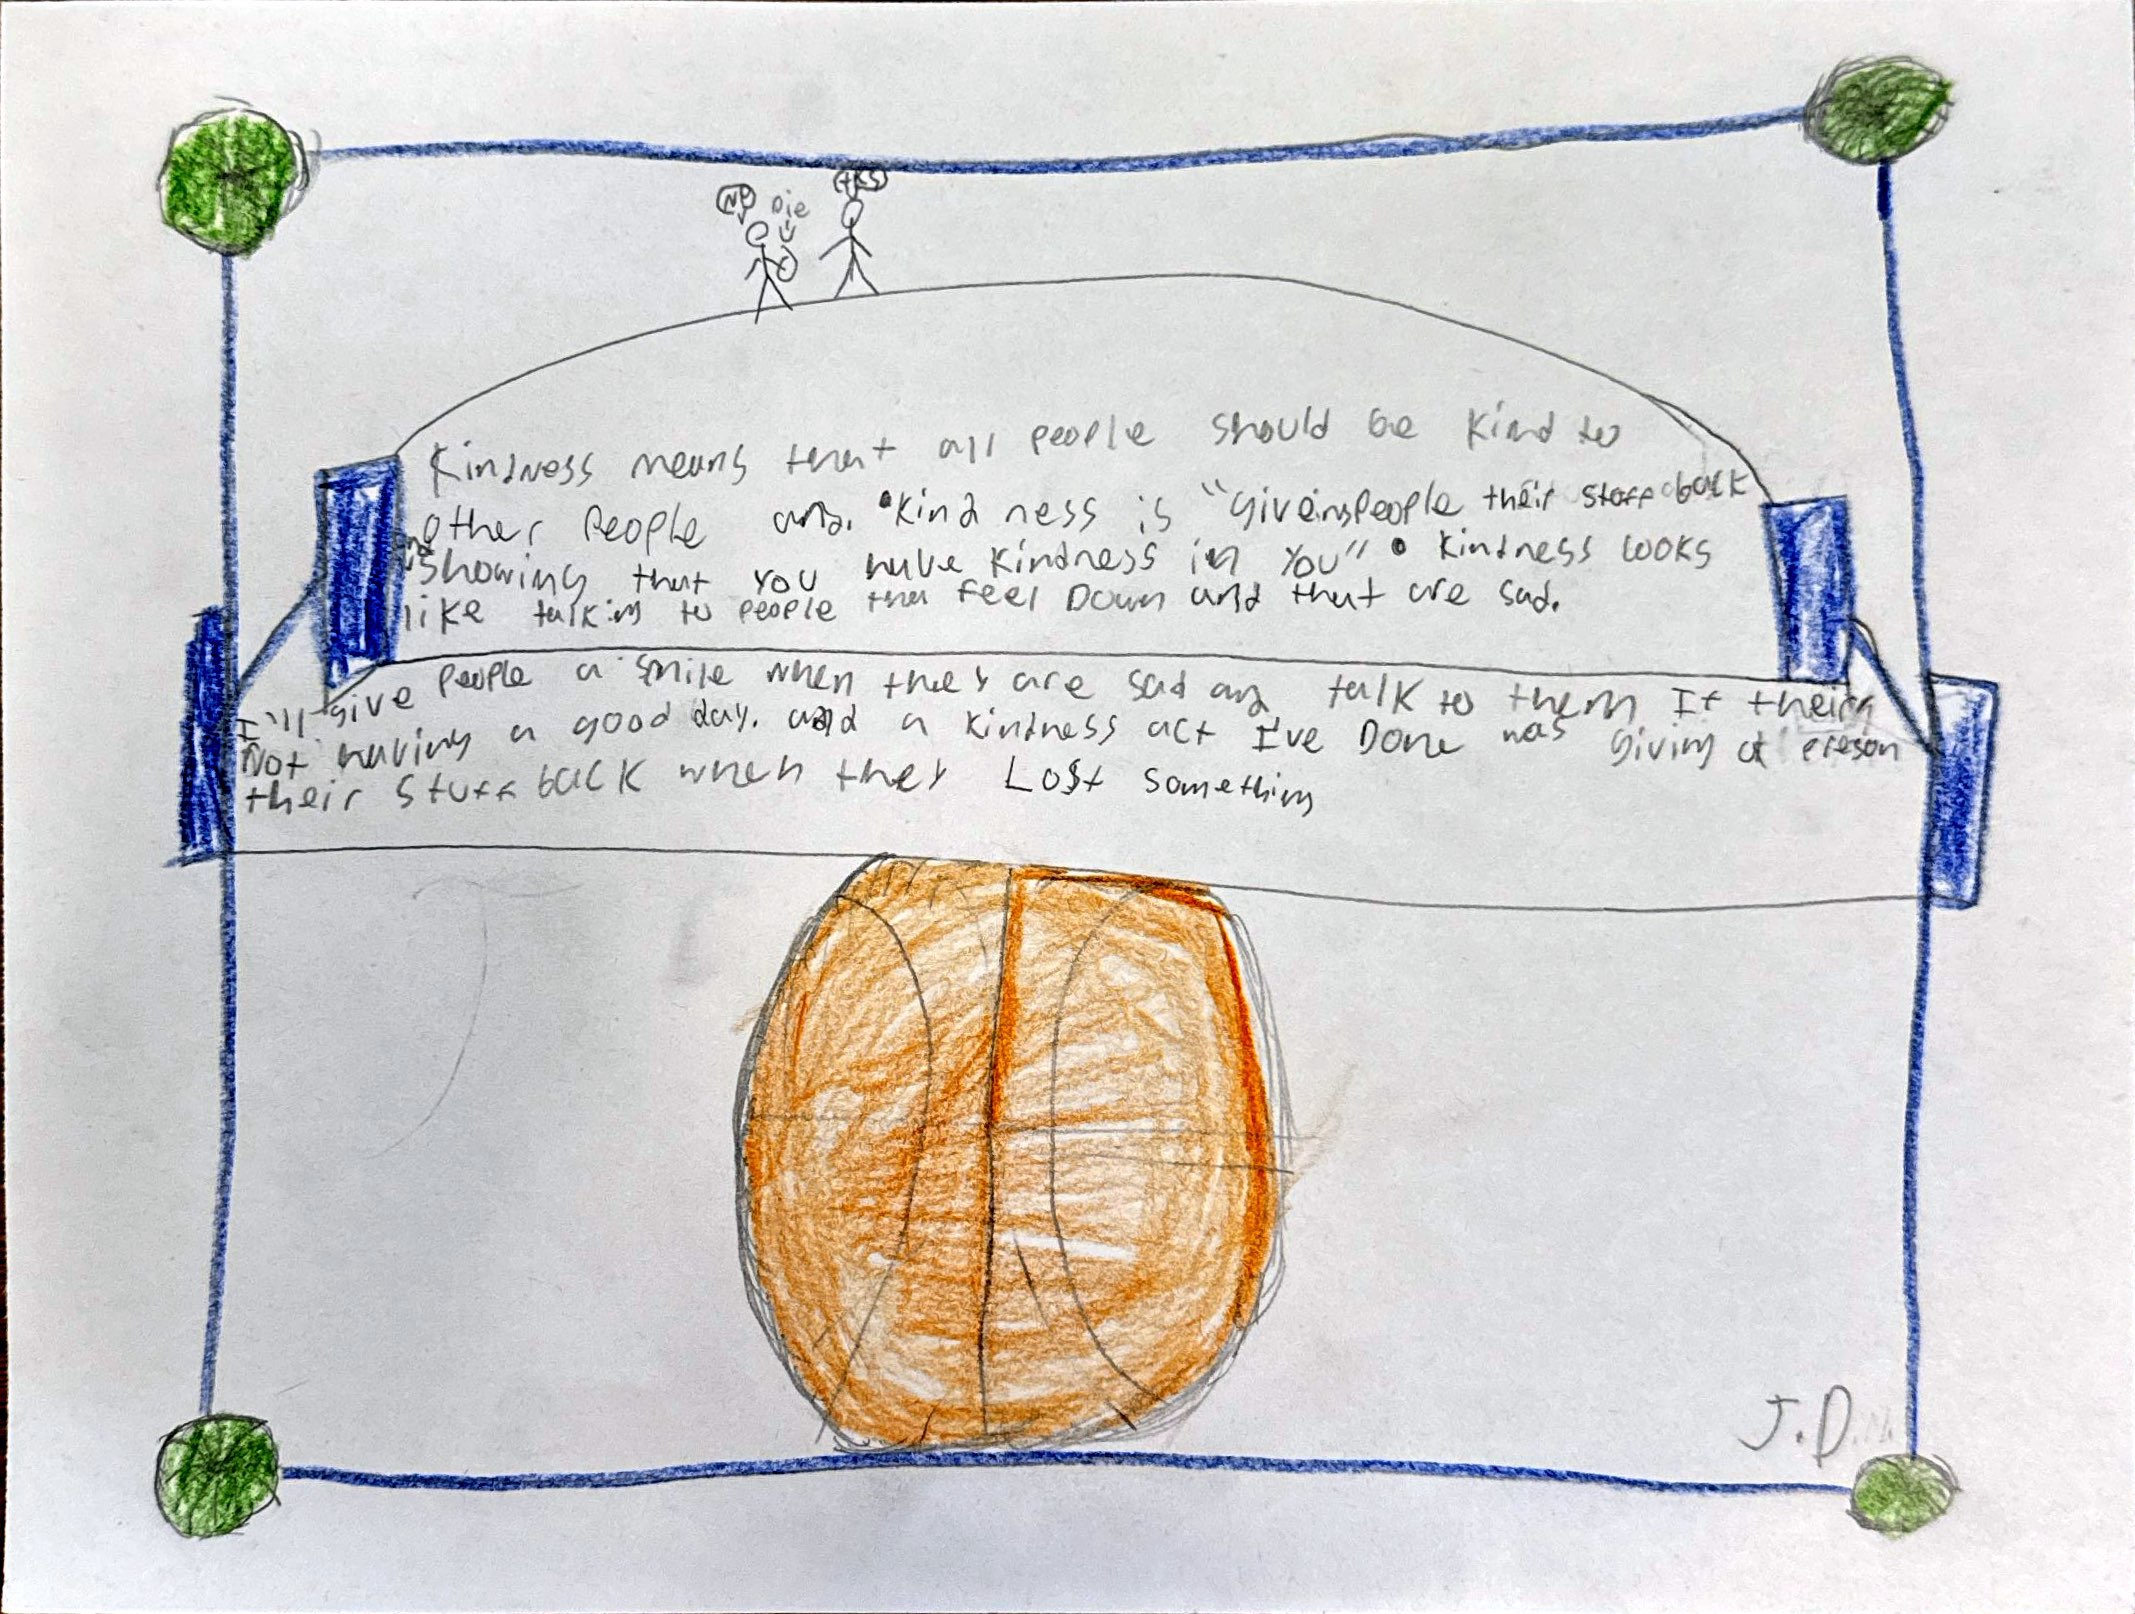 NP Die TKS
Kindness means that all people should be kind to
other People and. "kind ness is "giveing People their stuff back
and showing that you have kindness in you". kindness looks
like talking to people that feel Down and that are sad.
I'll give people a smile when they are sad and talk to them If their
Not having a good day. and a kindness act I've Done was giving a preson
their stuff back when they Lost something
J.D.